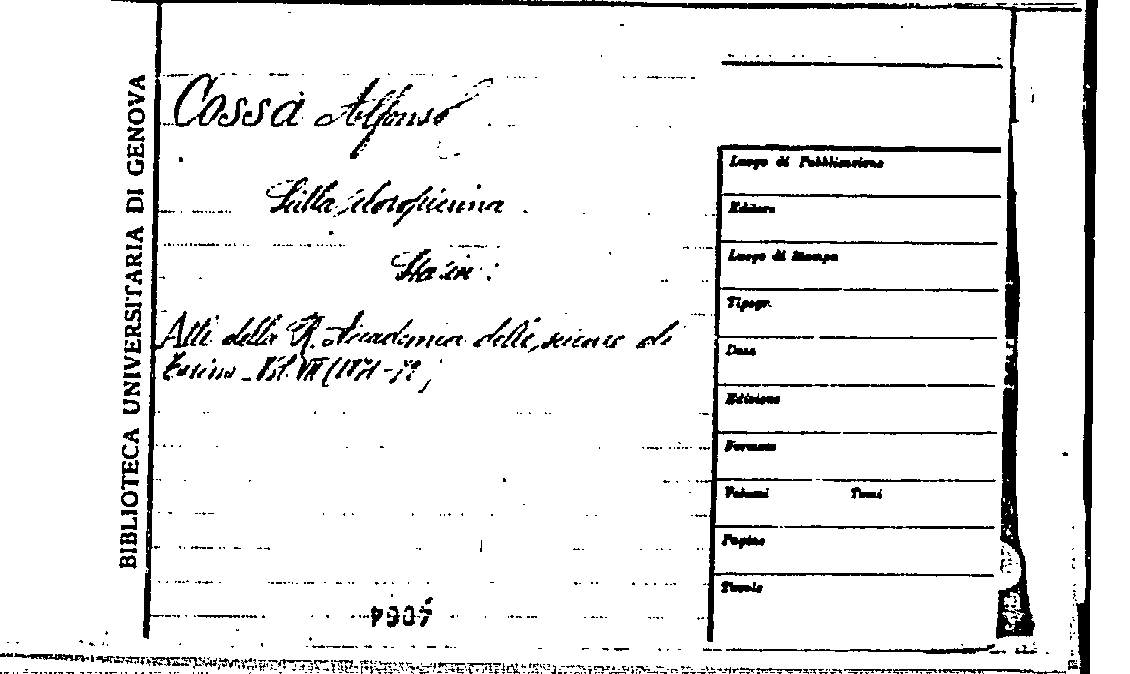 BIBLIOTECA UNIVERSITARIA DI GENOVA
Cossa Alfonso
Sulla idrofisinna
Sta in:
Atti della R. Accademia delle scienze di
Torino. Vol. VII (1871-72)
Luogo di Pubblicazione
Editore
Luogo di Stampa
Tipogr.
Data
Edizione
Formato
Volumi Tomi
Pagine
Tavole